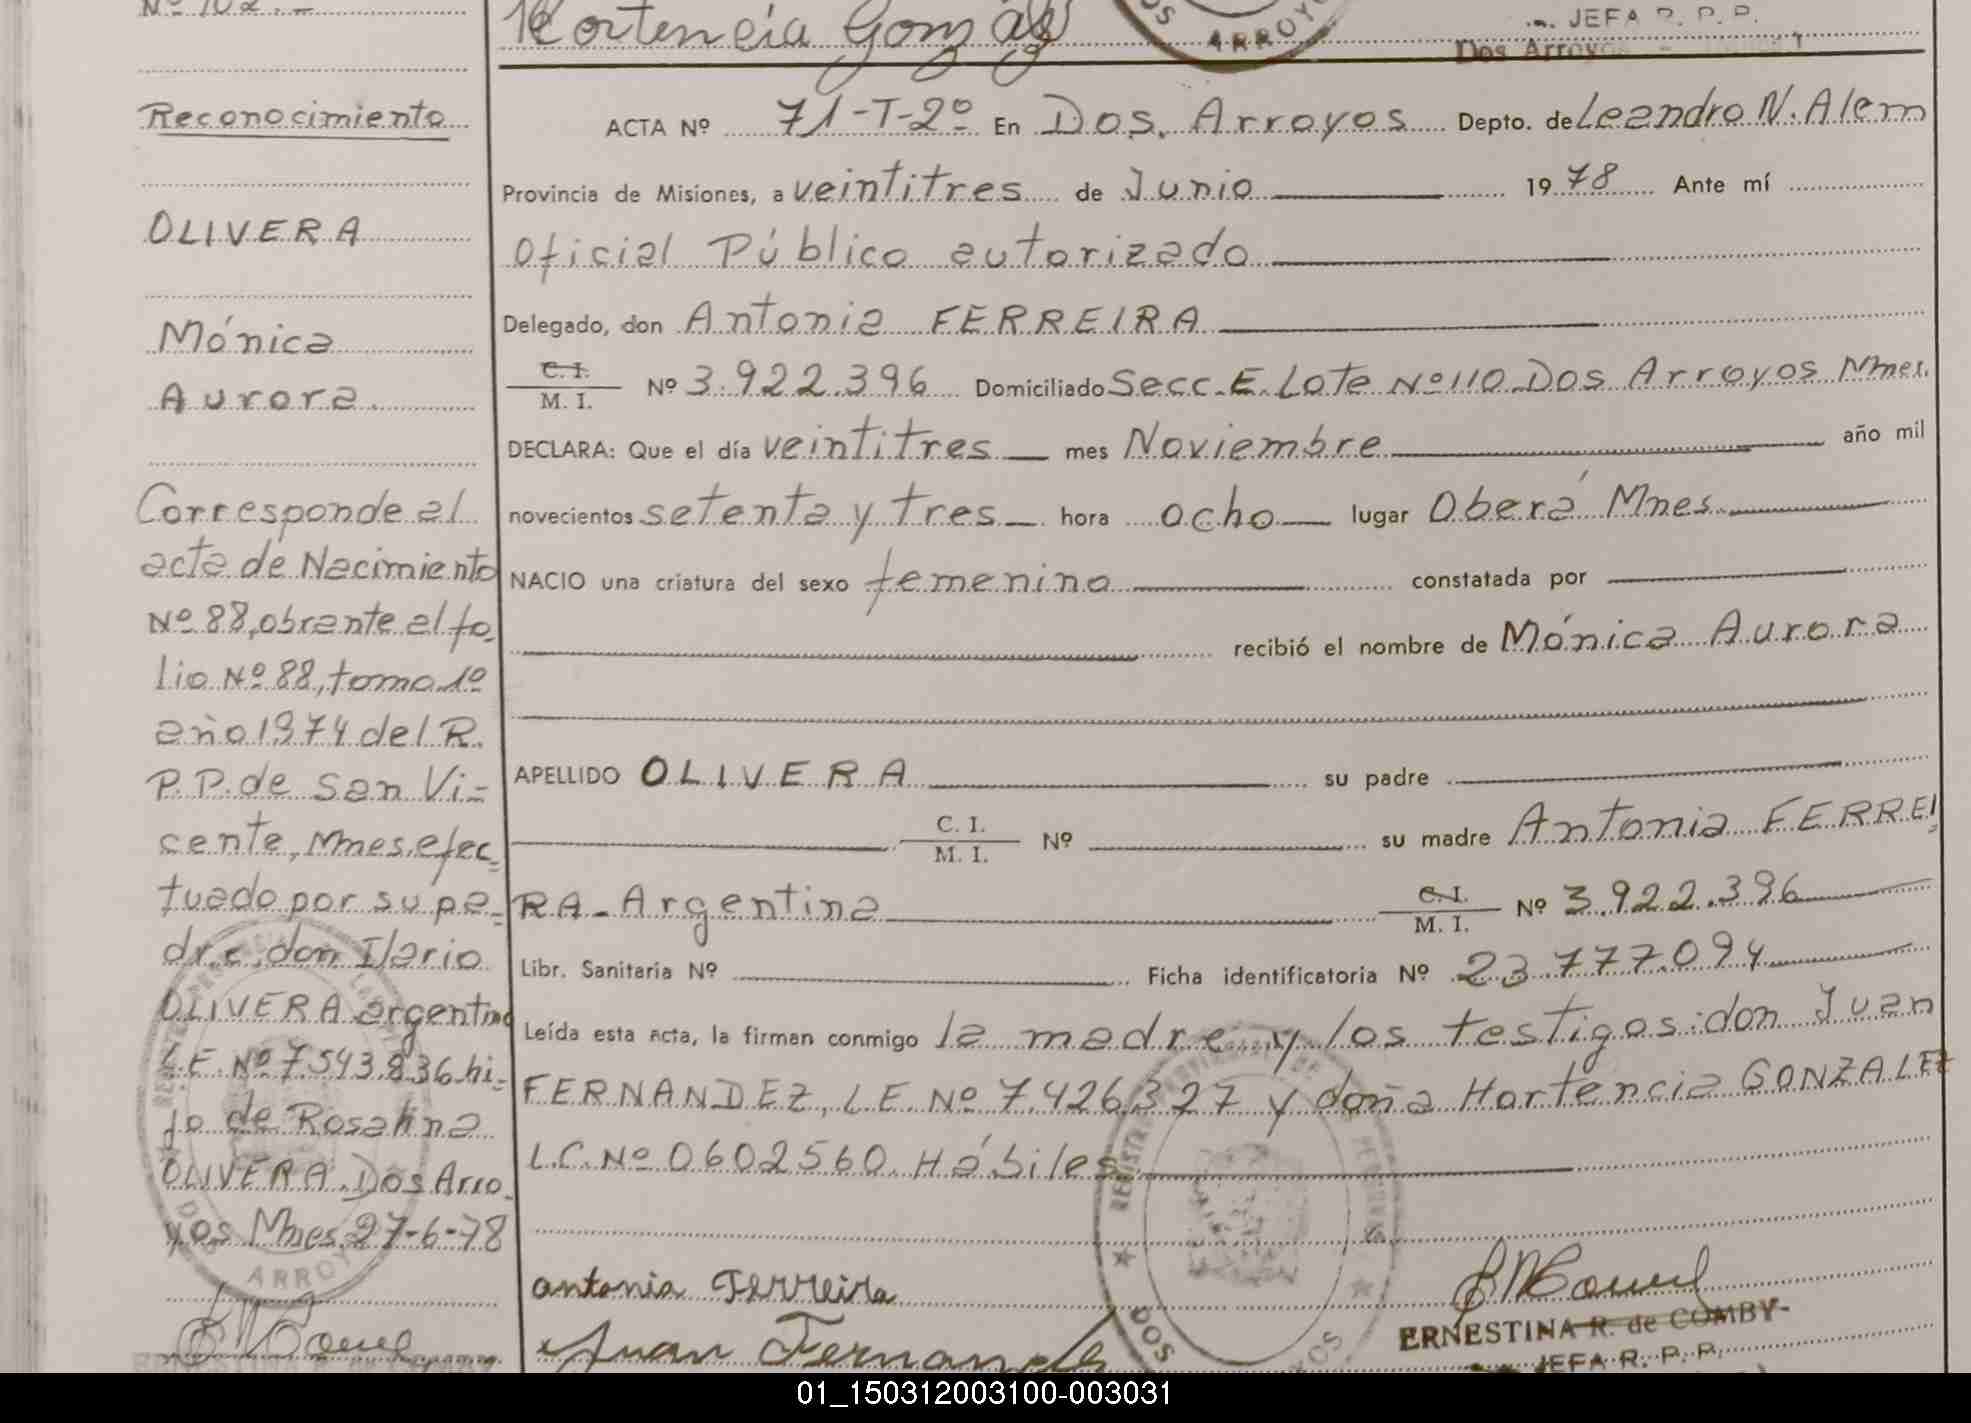 Nº 102.-
Hortencia Gonzále
ARROYO
JEFA R. P. P.
Dos Arroyos
Reconocimiento
OLIVERA
Mónica
Aurora.
Corresponde al
acta de Nacimiento
Nº 88, obrante al fo-
lio Nº 88, tomo 1º
año 1974 del R.
P.P. de San Vi=
cente, Mnes. efec=
tuado por su pa=
dre, don Ilario
OLIVERA argentino
L.E. Nº 7.543.836 hi=
jo de Rosalina
OLIVERA. Dos Arro-
yos Mnes. 27-6-78
ARROYO
ACTA Nº 71-T-2º En Dos. Arroyos Depto. de Leandro N. Alem
Provincia de Misiones, a veintitres de Junio 1978 Ante mí
Oficial Público autorizado
Delegado, don Antonia FERREIRA
C. I. / M. I. Nº 3.922.396 Domiciliado Secc. E. Lote Nº 110 Dos Arroyos Mnes.
DECLARA: Que el día veintitres mes Noviembre año mil
novecientos setenta y tres hora ocho lugar Oberá Mnes.
NACIO una criatura del sexo femenino constatada por
recibió el nombre de Mónica Aurora
APELLIDO OLIVERA su padre
C. I. / M. I. Nº su madre Antonia FERREI-
RA - Argentina C. I. / M. I. Nº 3.922.396
Libr. Sanitaria Nº Ficha identificatoria Nº 23.777.094
Leída esta acta, la firman conmigo la madre y los testigos: don Juan
FERNANDEZ, L.E. Nº 7.426.327 y doña Hortencia GONZALEZ
L.C. Nº 0602560. Hábiles
antonia Ferreira
Juan Fernande
DOS
ERNESTINA R. de COMBY-
JEFA R. P. P.
01_150312003100-003031